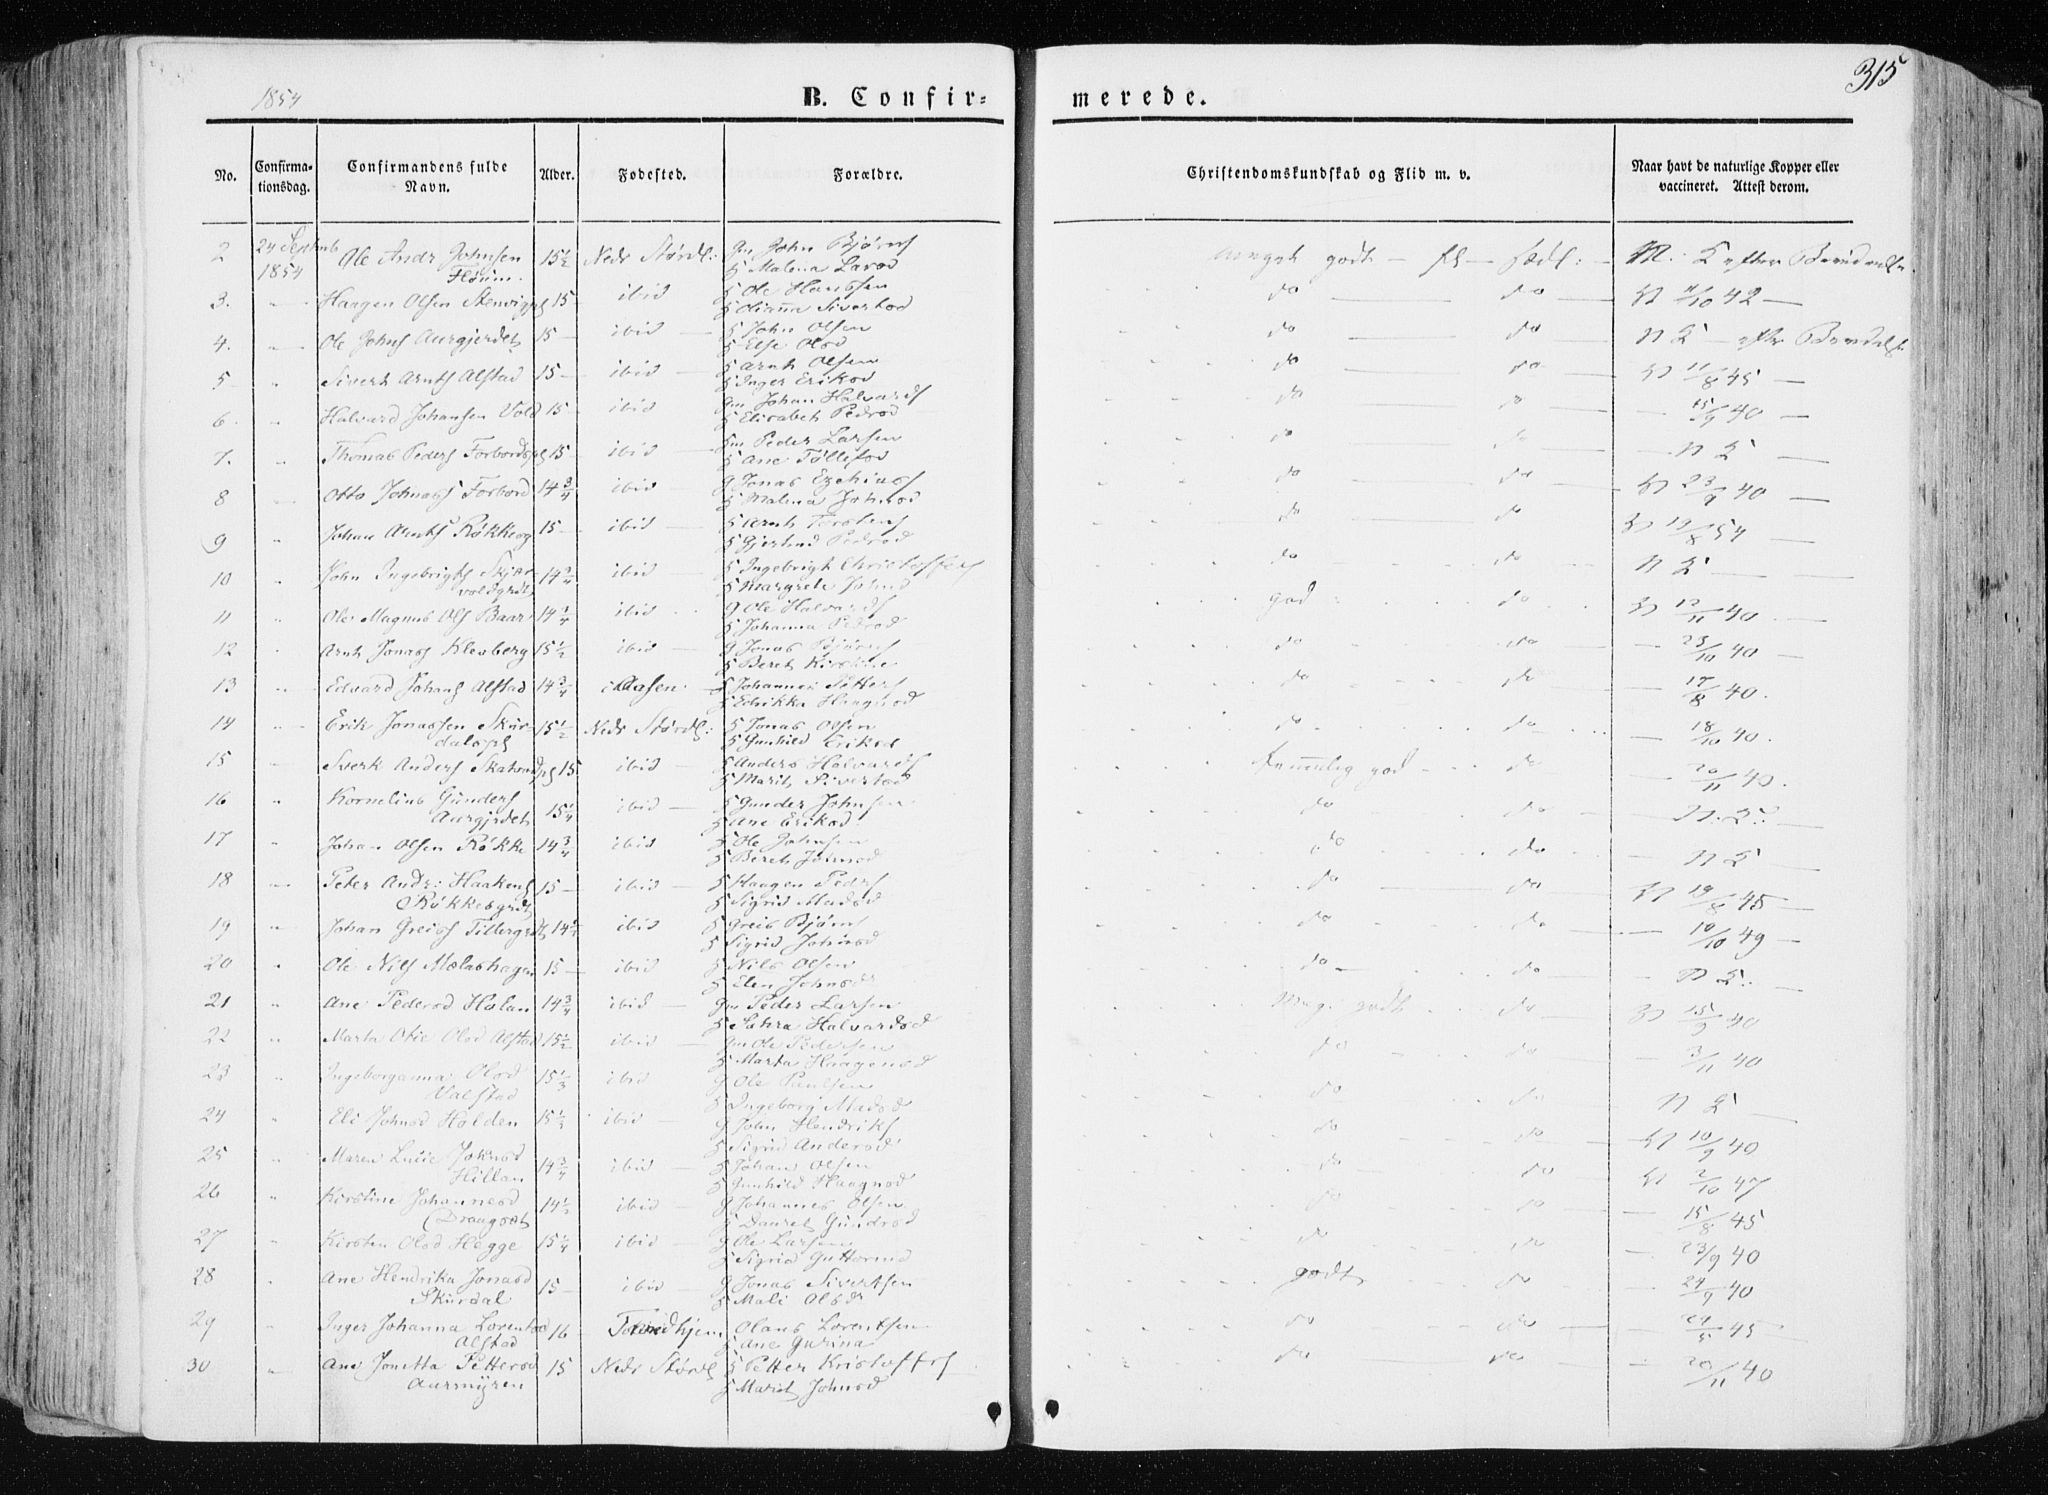 1854
B. Confir-
merede.
315
No.
Confirma-
tionsdag.
Confirmandens fulde
Navn.
Alder.
Fødested.
Forældre.
Christendomskundskab og Flid m. v.
Naar havt de naturlige Kopper eller
vaccineret. Attest derom.
2 24 Septemb Ole Andr Johnsen 15½ Neds Størdl: Gm John Bjørns meget godt
1854 Malena Larsd
3. Haagen Olsen Stenvigpl 15 ibid Ole Hanssen do do 11/10 42
Olianna Sivertsd
4. Ole Johns Aurgjerdet 15 ibid John Olsen do do
Else Olsd
5 Sivert Arnts Alstad 15 ibid Arnt Olsen do do 11/8 45
Inger Eriksd
6 Halvard Johansen Vold 15 ibid Gm Johan Halvards do do 15/9 40
Elisabeth Pedrsd
7. Thomas Peders Forbordspl 15 ibid Gm Peder Larsen do do
Ane Tollefsd
8 Otto Johnass Forbord 14¾ ibid G Jonas Ezehiass do do 23/9 40
Malena Johnsd
9 Johan Arnts Røkkeog 15 ibid Arnt Torstens do do 19/8 54
Gjertrud Pedrsd
10 John Ingebrigts Skjær- 14¾ ibid Ingebrigt Christoffers do do
voldgrdt Margrete Johnsd
11 Ole Magnus Ols Baar 14¾ ibid G Ole Halvards god do 12/11 40
Johanna Pedrsd
12 Arnt Jonass Klevberg 15½ ibid G Jonas Bjørns do do 23/10 40
Beret Kirstine
13 Edvard Johans Alstad 14¾ Aasen Johannes Petters do do 17/8 40.
Edrikka Haagnsd
14 Erik Jonassen Skur- 15½ Neds Størdl: Jonas Olsen do do 18/10 40.
dalspl Gunhild Eriksd
15 Sverk Anders 15 ibid Anders Halvards temmelig god do 20/11 40.
Marit Sivertsd
16 Kornelius Gunders 15¼ ibid Gunder Johnsen do do
Aurgjrdet Ane Eriksd
17 Johan Olsen Røkke 14¾ ibid Ole Johnsen do do
Beret Johnsd
18 Peter Andr: Haakens 15 ibid Haagen Peders do do 19/8 45
Røkkesgrdt Sigrid Madsd
19 Johan Greiss Tillergrdt ibid Greis Bjørns do do 10/10 49
Sigrid Johnsd
20 Ole Nils Mælashagen 15 ibid Nils Olsen do do
Elen Johnsdr
21 Ane Pedersd Holan 14¾ ibid Gm Peder Larsen Meg. godt do 15/9 40
Sahra Halvardsd
22 Marta Otie Olsd Alstad 15½ ibid Gm Ole Pedersen do do 3/11 40
Marta Haagensd
23 Ingeborganna Olsd 15⅓ ibid G Ole Paulsen do do
Valstad Ingeborg Madsd
24 Eli Johnsd Holden 15½ ibid G John Hendriks do do 10/9 40
Sigrid Andersd
25 Maren Lulie Johnsd 14¾ ibid Johan Olsen do do 2/10 47
Hillan Gunhild Haagnsd
26 Kirstine Johannesd 14½ ibid G Johannes Olsen do do 15/8 45
Draugset Dauret Gundrsd
27 Kirsten Olsd Hegge 15¼ ibid G Ole Larsen do do 23/9 40
Sigrid Guttormsd
28 Ane Hendrika Jonasd 15 ibid G Jonas Sivertsen godt do 24/9 40
Skurdal Mali Olsdr
29 Inger Johanna Lorentsd 16 Trondhjem Olaus Lorentsen do do 24/5 45
Alstad Ane Gurina
30 Ane Jonetta Pettersd 15 Neds Størdl Petter Kristoffers do do 20/11 40
Aurmyren Marit Johnsd